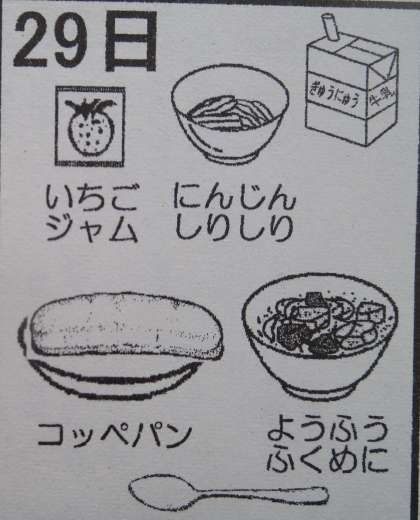 29日
ぎゅうにゅう
牛乳
いちご
ジャム
にんじん
しりしり
コッペパン
ようふう
ふくめに